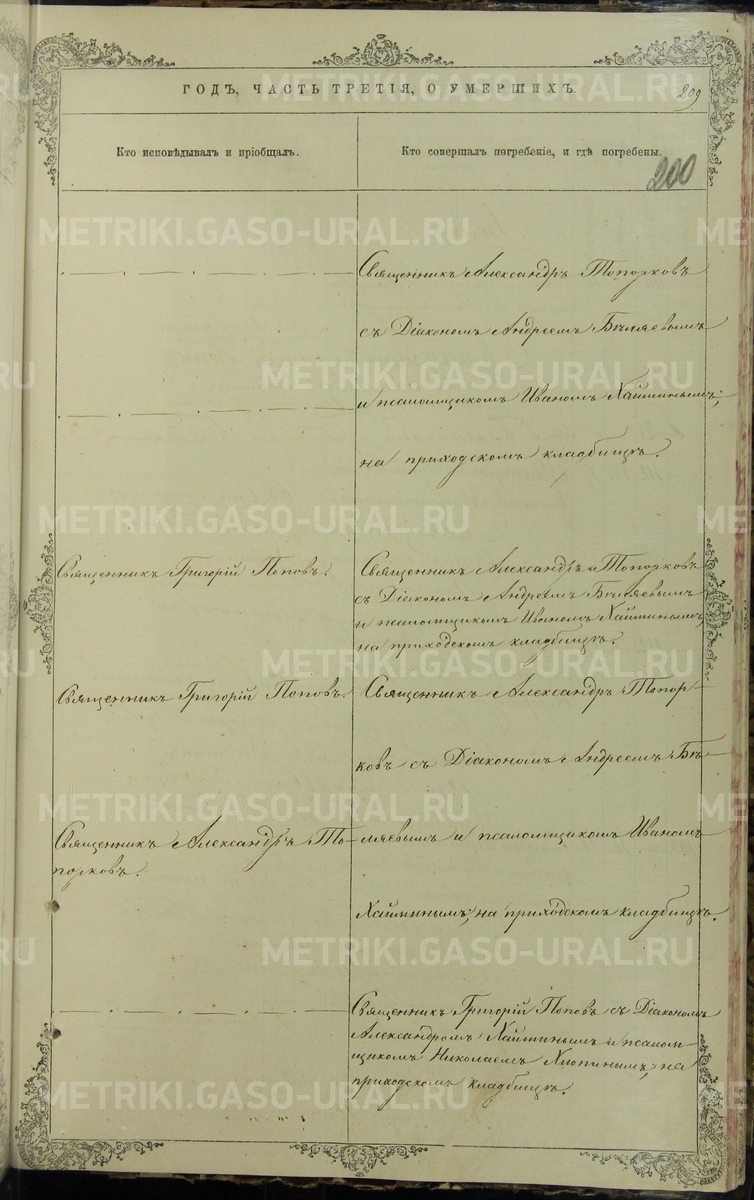 ГОДЪ, ЧАСТЬ ТРЕТІЯ, О УМЕРШИХЪ.
209
Кто исповѣдывалъ и пріобщалъ.
Кто совершалъ погребеніе, и гдѣ погребены.
200
Священникъ Александръ Топорковъ
съ Діакономъ Андреемъ Бѣляевымъ
и псаломщикомъ Иваномъ Хайминымъ;
на приходскомъ кладбищѣ.
Священникъ Григорій Поповъ.
Священникъ Александръ Топорковъ
съ Діакономъ Андреемъ Бѣляевымъ
и псаломщикомъ Иваномъ Хайминымъ,
на приходскомъ кладбищѣ.
Священникъ Григорій Поповъ.
Священникъ Александръ Топор-
ковъ съ Діакономъ Андреемъ Бѣ-
Священникъ Александръ То-
порковъ.
ляевымъ и псаломщикомъ Иваномъ
Хайминымъ, на приходскомъ кладбищѣ.
Священникъ Григорій Поповъ съ Діакономъ
Александромъ Хайминымъ и псалом-
щикомъ Николаемъ Хлопинымъ, на
приходскомъ кладбищѣ.
METRIKI.GASO-URAL.RU